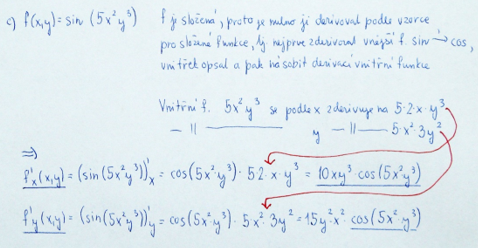 c) f(x,y) = sin (5x²y³) f je složená, proto je nutno ji derivovat podle vzorce
pro složené funkce, tj. nejprve zderivovat vnější f. sin → cos,
vnitřek opsat a pak násobit derivací vnitřní funkce
Vnitřní f. 5x²y³ se podle x zderivuje na 5·2·x·y³
— || — y — || — 5·x²·3y²
⇒
f'x(x,y) = (sin(5x²y³))'x = cos(5x²y³) · 5·2·x·y³ = 10xy³ cos(5x²y³)
f'y(x,y) = (sin(5x²y³))'y = cos(5x²y³) · 5x²·3y² = 15y²x² cos(5x²y³)